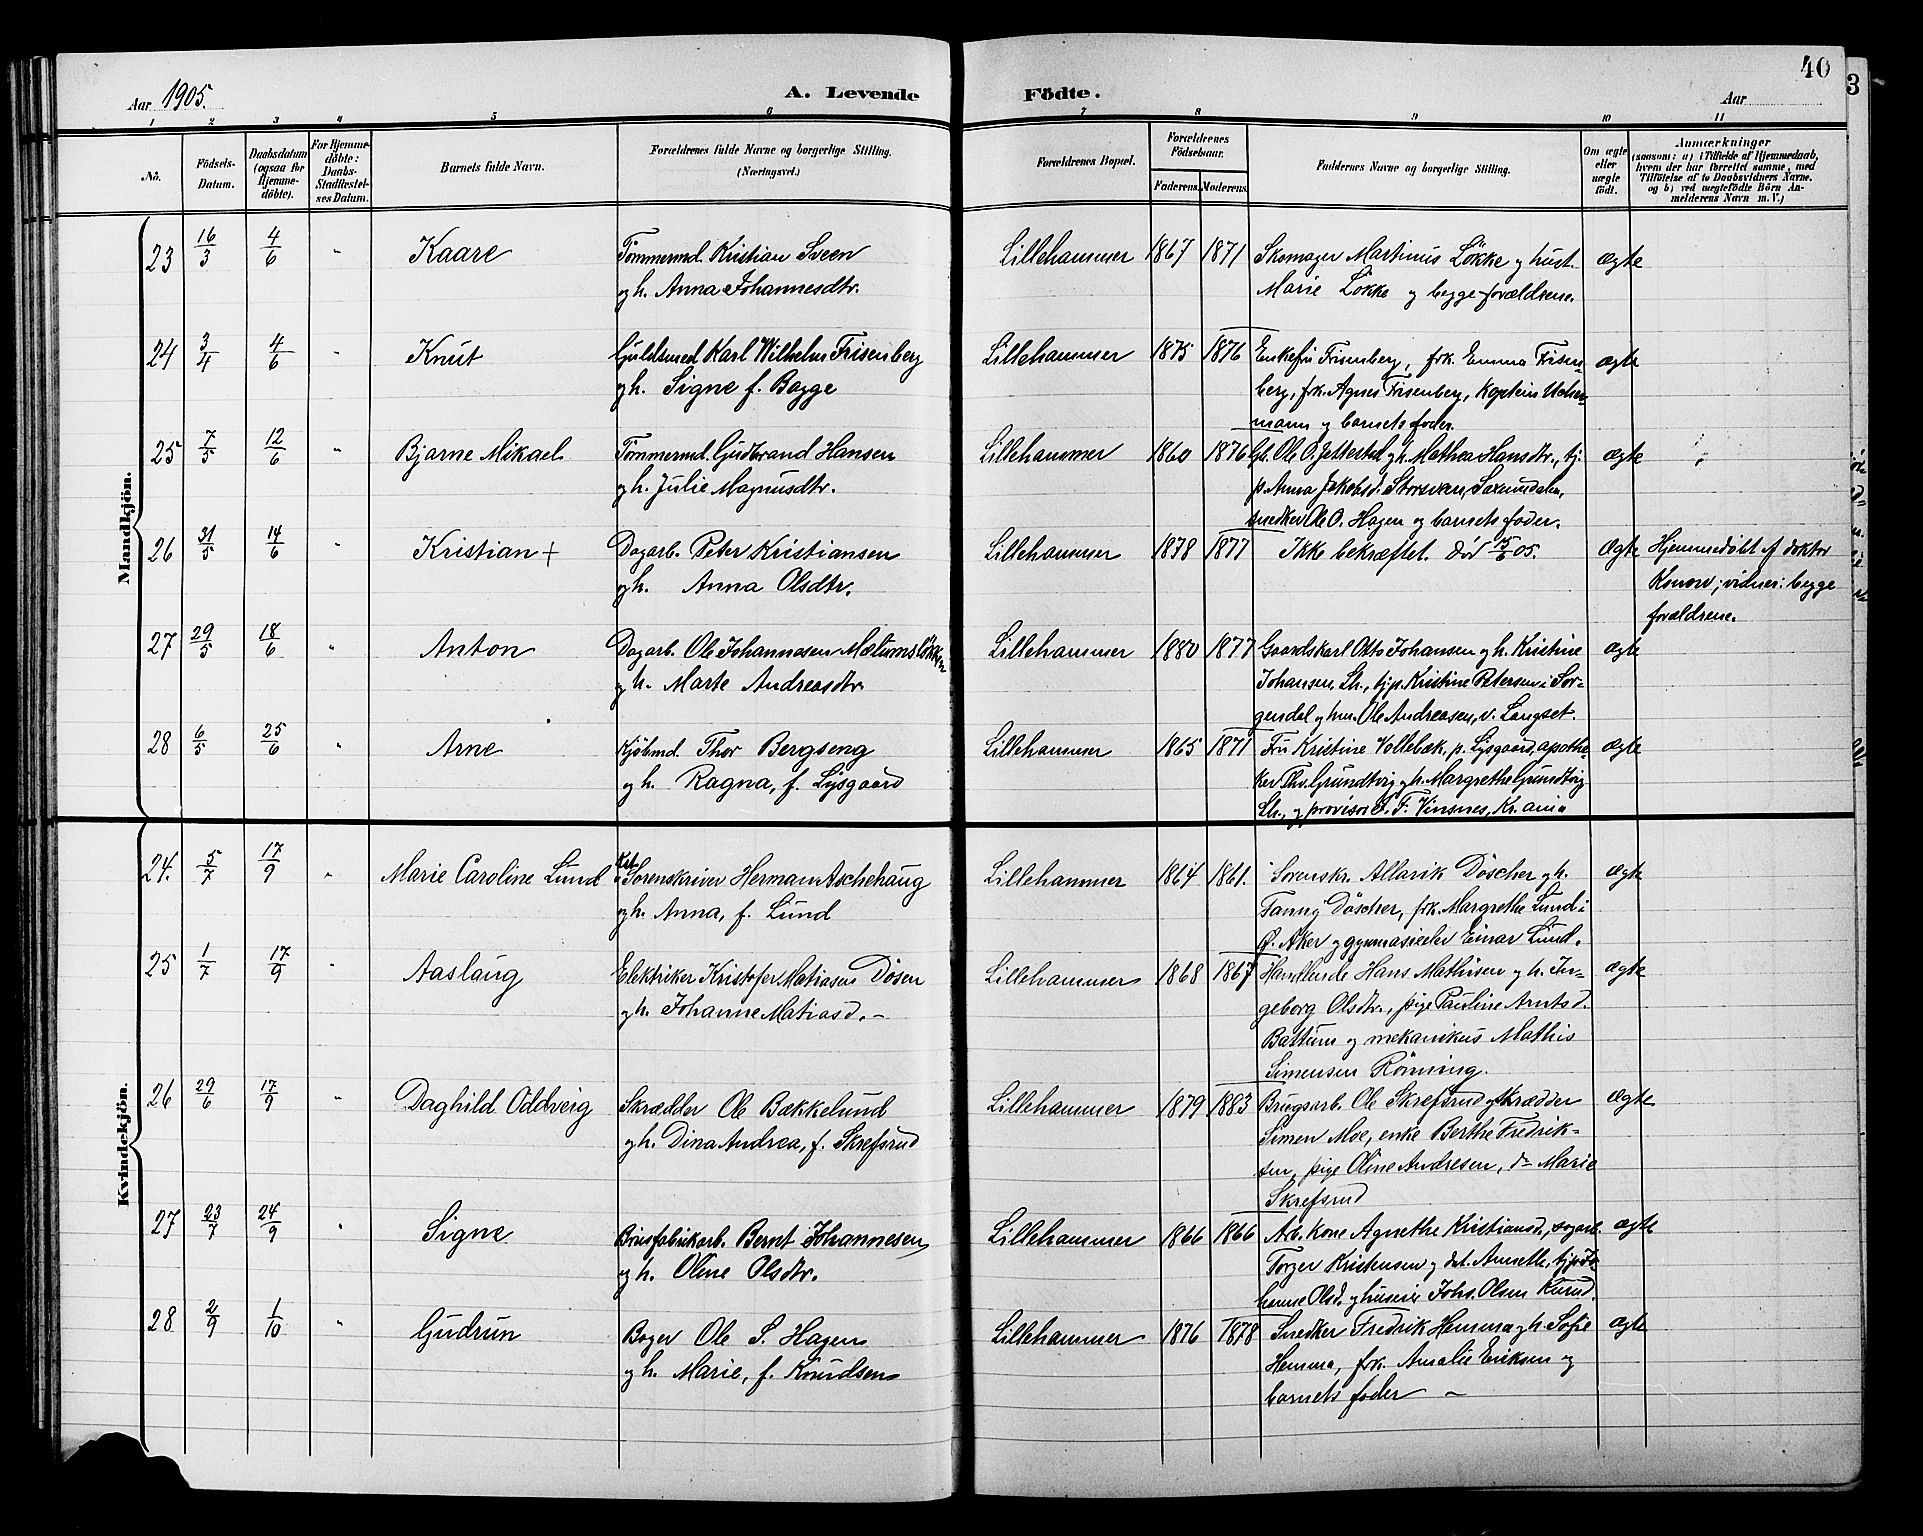 40
Aar 1905.
A. Levende Födte.
Aar
1 2 3 4 5 6 7 8 9 10 11
No.
Födsels-Datum.
Daabsdatum (ogsaa for Hjemme-döbte).
For Hjemme-döbte: Daabs-Stadfæstel-ses Datum.
Barnets fulde Navn.
Forældrenes fulde Navne og borgerlige Stilling.
(Næringsvei.)
Forældrenes Bopæl.
Forældrenes Födselsaar.
Faderens. Moderens.
Faddernes Navne og borgerlig Stilling.
Om ægte eller uægte födt.
Anmærkninger
(saasom: a) i Tilfælde af Hjemmedaab,
hvem der har forrettet samme, med
Tilföielse af to Daabsvidners Navne.
og b) ved uægtefödte Börn An-
melderens Navn m. V.)
Mandkjön.
23 16/3 4/6 " Kaare Tømmermd. Kristian Sveen Lillehammer 1867 1871 Skomager Martinus Løkke og hust. ægte
og h. Anna Johannesdtr. Marie Løkke og begge forældrene.
24 3/4 4/6 " Knut Guldsmed Karl Wilhelm Frisenberg Lillehammer 1875 1876 Enkefru Frisenberg, frk. Emma Frisen- ægte
og h. Signe f. Bagge berg, frk. Agnes Frisenberg, Kaptein Ucher-
mann og barnets fader.
25 7/5 12/6 " Bjarne Mikael Tømmermd. Gudbrand Hansen Lillehammer 1860 1876 Gb. Ole O. Jettestad og h. Mathea Hansdtr., tj. ægte
og h. Julie Magnusdtr. p. Anna Jakobsd. Storsveen, Saxumdalen,
snedker Ole O. Hagen og barnets fader.
26 31/5 14/6 " Kristian + Dagarb. Peter Kristiansen Lillehammer 1878 1877 Ikke bekræftet. död 15/6 05. Ægte Hjemmedöbt af doktor
og h. Anna Olsdtr. Konow; vidner: begge
forældrene.
27 29/5 18/6 " Anton Dagarb. Ole Johannesen Mælumsløkken Lillehammer 1880 1877 Gaardskarl Otto Johansen og h. Kristine ægte
og h. Marte Andreasdtr. Johansen, Lh., tj.p. Kristine Petersen i Sor-
gendal og hm. Ole Andreasen, v. Langset.
28 6/5 25/6 " Arne Kjöbmd. Thor Bergseng Lillehammer 1865 1871 Fru Kristine Vollebæk, p. Lysgaard, apothe- ægte
og h. Ragna, f. Lysgaard ker Thv. Grundtvig og h. Margrethe Grundtvig
Lh., og provisor F. Vinsnes, Kr.ania
Kvindekjön.
24. 5/7 17/9 " Marie Caroline Lund Kst. Sorenskriver Herman Aschehaug Lillehammer 1864 1861. Sorenskr. Allarik Döscher og h. ægte
og h. Anna, f. Lund Fanny Döscher, frk. Margrethe Lund i
Ø. Aker og gymnasieelev Einar Lund.
25 1/7 17/9 " Aaslaug Elektriker Kristofer Matiasen Døsen Lillehammer 1868 1867 Handlende Hans Mathisen og h. In- ægte
og h. Johanne Matiasd. - geborg Olsdtr., pige Pauline Arntsd.
Battum og mekanikus Mathis
Simensen Rönning.
26 29/6 17/9 " Daghild Oddveig Skrædder Ole Bakkelund Lillehammer 1879 1883 Brugsarb. Ole Skrefsrud og skrædder ægte
og h. Dina Andrea, f. Skrefsrud Simen Moe, enke Berthe Fredrik-
sen, pige Oline Andresen, do Marie
Skrefsrud
27 23/7 24/9 " Signe Brusfabrikarb. Bernt Johannesen Lillehammer 1866 1866 Arb. kone Agnethe Kristiansd., sagarb. ægte
og h. Oline Olsdtr. Torger Kristensen og dat. Annette, tj.p. Jo-
hanne Olsd. og huseier Johs. Olsen
28 2/9 1/10 " Gudrun Bager Ole S. Hagen Lillehammer 1876 1878 Snedker Fredrik Hemma og h. Sofie ægte
og h. Marie, f. Knudsen Hemma, frk. Amalie Eriksen og
barnets fader -